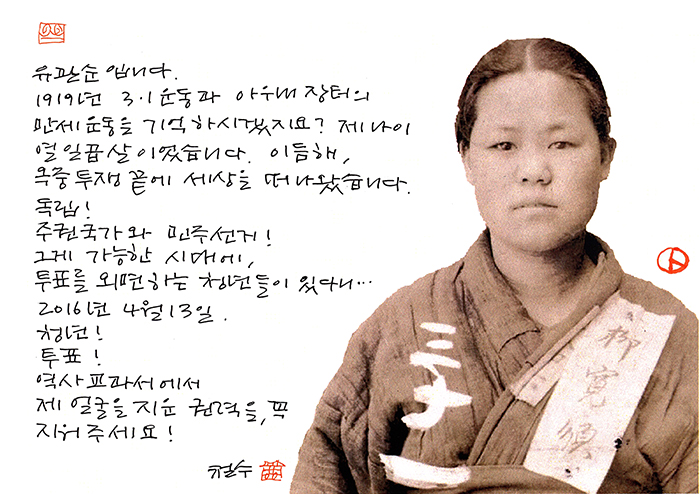 유관순입니다.
1919년 3·1운동과 아우내장터의
만세운동을 기억하시겠지요? 제 나이
열일곱살이었습니다. 이듬해,
옥중투쟁 끝에 세상을 떠나왔습니다.
독립!
주권국가와 민주선거!
그게 가능한 시대에,
투표를 외면하는 청년들이 있다니···
2016년 4월 13일.
청년!
투표!
역사교과서에서
제 얼굴을 지운 권력을, 꼭
지워주세요!
철수
柳寛順